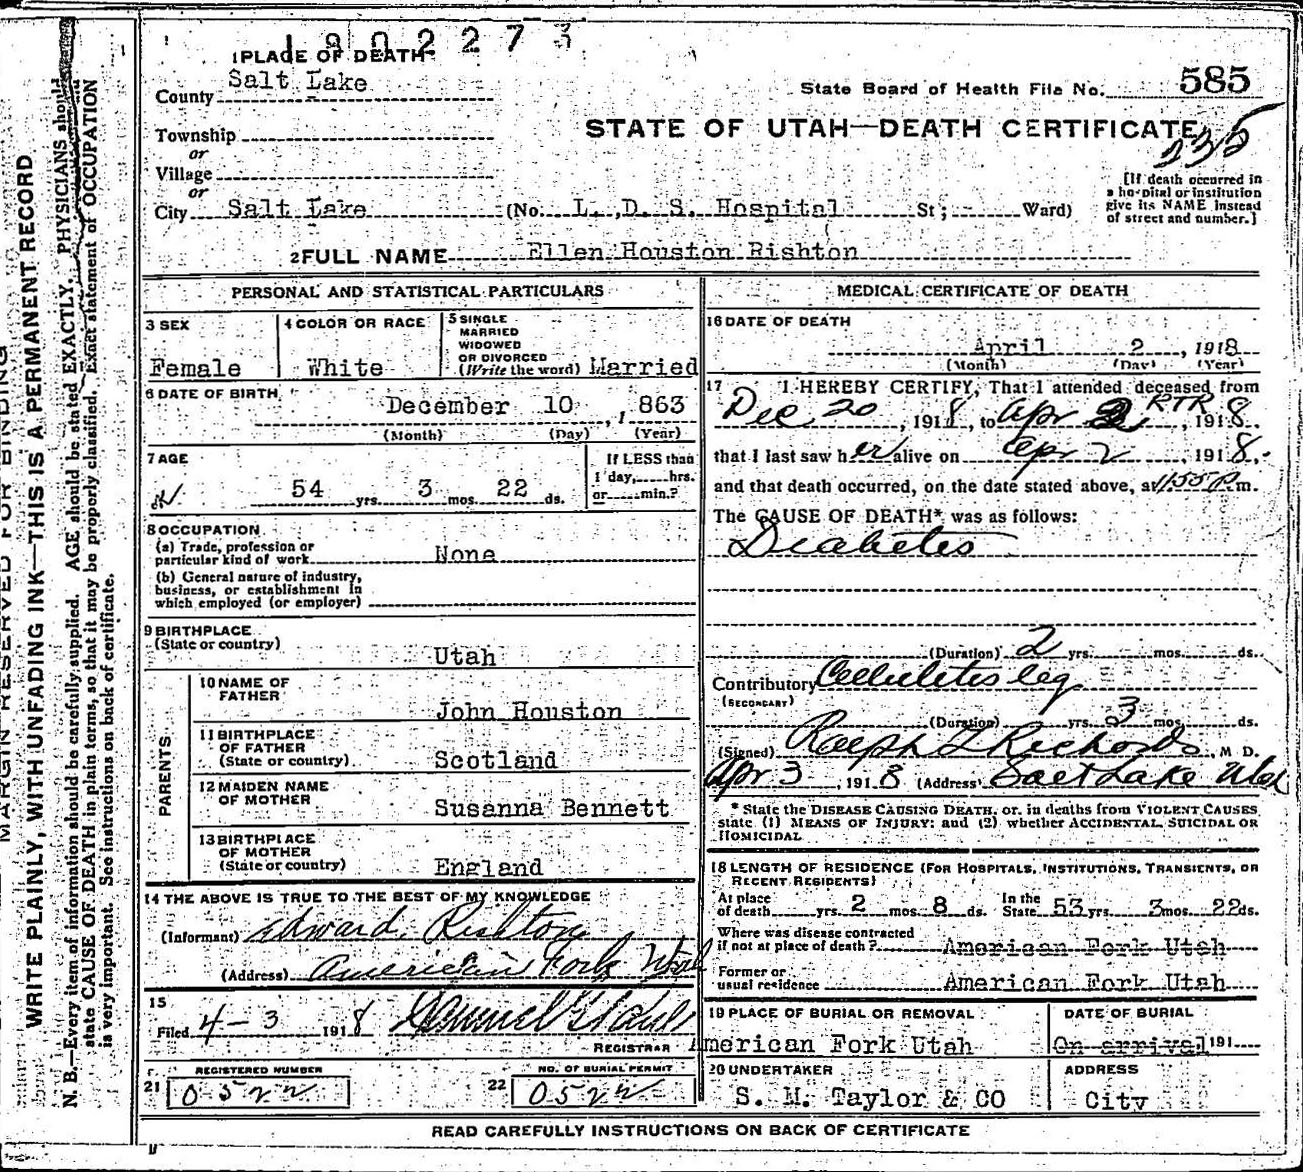 1902273
1 PLACE OF DEATH
County Salt Lake
State Board of Health File No. 585
Township
or
STATE OF UTAH—DEATH CERTIFICATE
235
Village
or
City Salt Lake (No. L. D. S. Hospital St; Ward)
[If death occurred in
a hospital or institution
give its NAME instead
of street and number.]
2 FULL NAME Ellen Houston Rishton
PERSONAL AND STATISTICAL PARTICULARS
3 SEX
Female
4 COLOR OR RACE
White
5 SINGLE
MARRIED
WIDOWED
OR DIVORCED
(Write the word) Married
6 DATE OF BIRTH
December 10, 1863
(Month) (Day) (Year)
7 AGE
54 yrs. 3 mos. 22 ds.
If LESS than
1 day, hrs.
or min.?
8 OCCUPATION
(a) Trade, profession or
particular kind of work None
(b) General nature of industry,
business, or establishment in
which employed (or employer)
9 BIRTHPLACE
(State or country) Utah
PARENTS
10 NAME OF
FATHER John Houston
11 BIRTHPLACE
OF FATHER
(State or country) Scotland
12 MAIDEN NAME
OF MOTHER Susanna Bennett
13 BIRTHPLACE
OF MOTHER
(State or country) England
14 THE ABOVE IS TRUE TO THE BEST OF MY KNOWLEDGE
(Informant) Edward Rishton
(Address) American Fork Utah
15
Filed 4-3 1918
REGISTRAR
REGISTERED NUMBER
21 0522
NO. OF BURIAL PERMIT
22 0522
MEDICAL CERTIFICATE OF DEATH
16 DATE OF DEATH
April 2, 1918
(Month) (Day) (Year)
17 I HEREBY CERTIFY, That I attended deceased from
Dec 20, 1918, to Apr 2 RTR, 1918.
that I last saw her alive on Apr 2, 1918,
and that death occurred, on the date stated above, at 11:55 P.m.
The CAUSE OF DEATH* was as follows:
Diabetes
(Duration) 2 yrs. mos. ds.
Contributory Cellulites leg
(SECONDARY)
(Duration) yrs. 3 mos. ds.
(Signed) Ralph T Richards, M D.
Apr 3, 1918 (Address) Salt Lake Utah
* State the DISEASE CAUSING DEATH, or, in deaths from VIOLENT CAUSES
state (1) MEANS OF INJURY; and (2) whether ACCIDENTAL, SUICIDAL OR
HOMICIDAL
18 LENGTH OF RESIDENCE (FOR HOSPITALS, INSTITUTIONS, TRANSIENTS, OR
RECENT RESIDENTS)
At place
of death yrs. 2 mos. 8 ds. In the
State 53 yrs. 3 mos. 22 ds.
Where was disease contracted
if not at place of death? American Fork Utah
Former or
usual residence American Fork Utah
19 PLACE OF BURIAL OR REMOVAL
American Fork Utah
DATE OF BURIAL
On arrival 191
20 UNDERTAKER
S. M. Taylor & CO
ADDRESS
City
READ CAREFULLY INSTRUCTIONS ON BACK OF CERTIFICATE
MARGIN RESERVED FOR BINDING
WRITE PLAINLY, WITH UNFADING INK—THIS IS A PERMANENT RECORD
N. B.—Every item of information should be carefully supplied. AGE should be stated EXACTLY. PHYSICIANS should
state CAUSE OF DEATH in plain terms, so that it may be properly classified. Exact statement of OCCUPATION
is very important. See instructions on back of certificate.